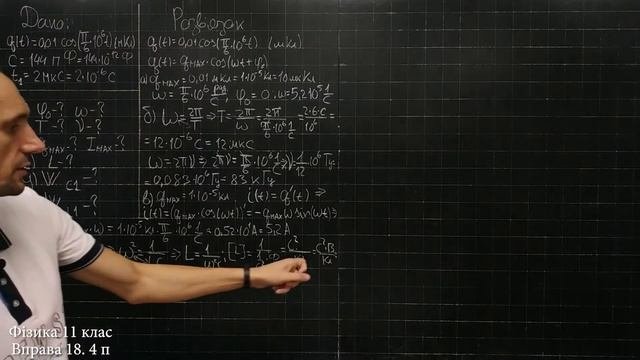 Дано:
q(t)=0,01 cos(π/6·10⁶t)(мКл)
C = 144 п Ф = 144·10⁻¹² Ф
t₁ = 2 мкс = 2·10⁻⁶ с
φ₀ -? ω -?
T -? ν -?
-? Imax -?
L -?
W C1 -?
Розв'язок
q(t)=0,01 cos(π/6 10⁶t) (мКл)
q(t)= qmax·cos(ωt+φ₀)
а) qmax = 0,01 мКл = 1·10⁻⁵ Кл = 10 мкКл
ω = π/6·10⁶ рад/с, φ₀ = 0, ω = 5,2·10⁵ 1/с
б) ω = 2π/T ⇒ T = 2π/ω = 2π/(π/6·10⁶ 1/с) = 2·6·с/10⁶ =
= 12·10⁻⁶ с = 12 мкс
ω = 2πν ⇒ 2πν = π/6·10⁶ 1/с ⇒ ν = 1/12·10⁶ Гц
= 0,083·10⁶ Гц = 83 кГц
в) qmax = 1·10⁻⁵ Кл, i(t) = q'(t) ⇒
i(t) = (qmax·cos(ωt))' = -qmax ω sin(ωt) ⇒
ω = 1·10⁻⁵ Кл·π/6·10⁶ 1/с = 0,52·10¹ А = 5,2 А
⇒ L =
Фізика 11 клас
Вправа 18. 4 п